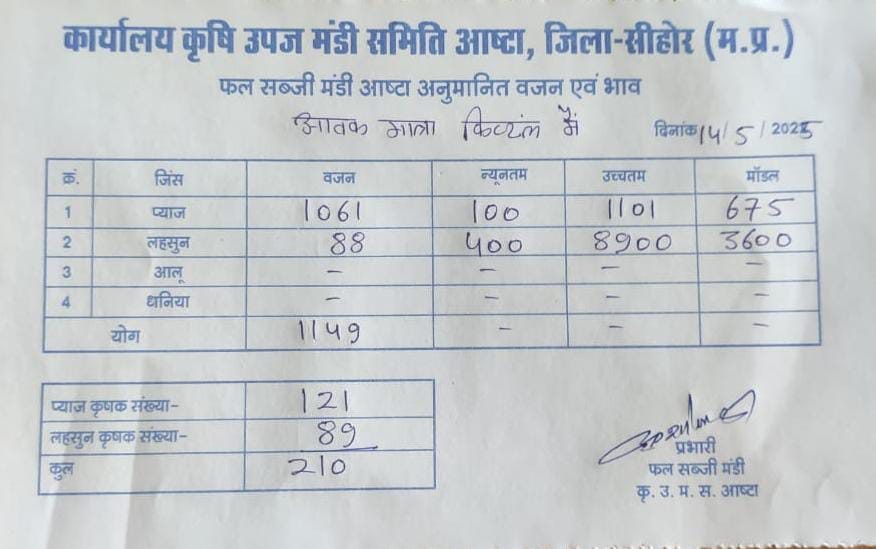 कार्यालय कृषि उपज मंडी समिति आष्टा, जिला-सीहोर (म.प्र.)
फल सब्जी मंडी आष्टा अनुमानित वजन एवं भाव
आवक मात्रा क्विंटल में दिनांक 14/5/2025
क्रं. जिंस वजन न्यूनतम उच्चतम मॉडल
1 प्याज 1061 100 1101 675
2 लहसुन 88 400 8900 3600
3 आलू - - - -
4 धनिया - - - -
योग 1149 - - -
प्याज कृषक संख्या- 121
लहसुन कृषक संख्या- 89
कुल 210
प्रभारी
फल सब्जी मंडी
कृ. उ. म. स. आष्टा